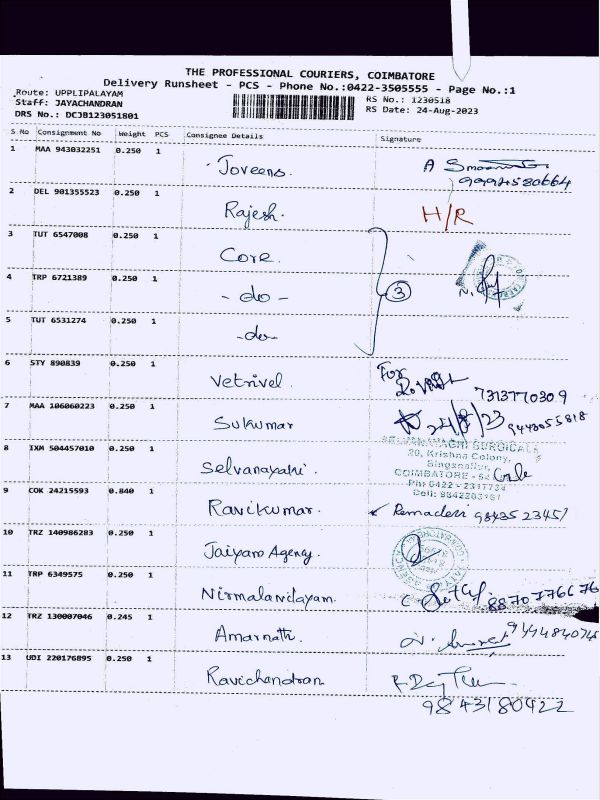 THE PROFESSIONAL COURIERS, COIMBATORE
Delivery Runsheet - PCS - Phone No.:0422-3505555 - Page No.:1
Route: UPPLIPALAYAM
Staff: JAYACHANDRAN
DRS No.: DCJB123051801
RS No.: 1230518
RS Date: 24-Aug-2023
S.No Consignment No Weight PCS Consignee Details Signature
1 MAA 943032251 0.250 1 Joveens. A
9994580664
2 DEL 901355523 0.250 1 Rajesh. H/R
3 TUT 6547008 0.250 1 Core.
4 TRP 6721389 0.250 1 - do - 3
5 TUT 6531274 0.250 1 -do-
6 STY 890839 0.250 1 Vetrivel. For
7313770309
7 MAA 106060223 0.250 1 Sukumar 24/8/23 9443055818
SELVANAYAGHI SURGICALS
20, Krishna Colony,
Singanallur,
COIMBATORE - 5
Ph: 0422 - 2317734
Cell: 9842263161
8 IXM 504457010 0.250 1 Selvanayahi.
9 COK 24215593 0.840 1 Ravikumar. Remadevi 9843523451
10 TRZ 140986283 0.250 1 Jaiyam Agency.
11 TRP 6349575 0.250 1 Nirmalandayam. 8870776676
12 TRZ 130007046 0.245 1 Amarnath.
13 UDI 220176895 0.250 1 Ravichandran
9843180422